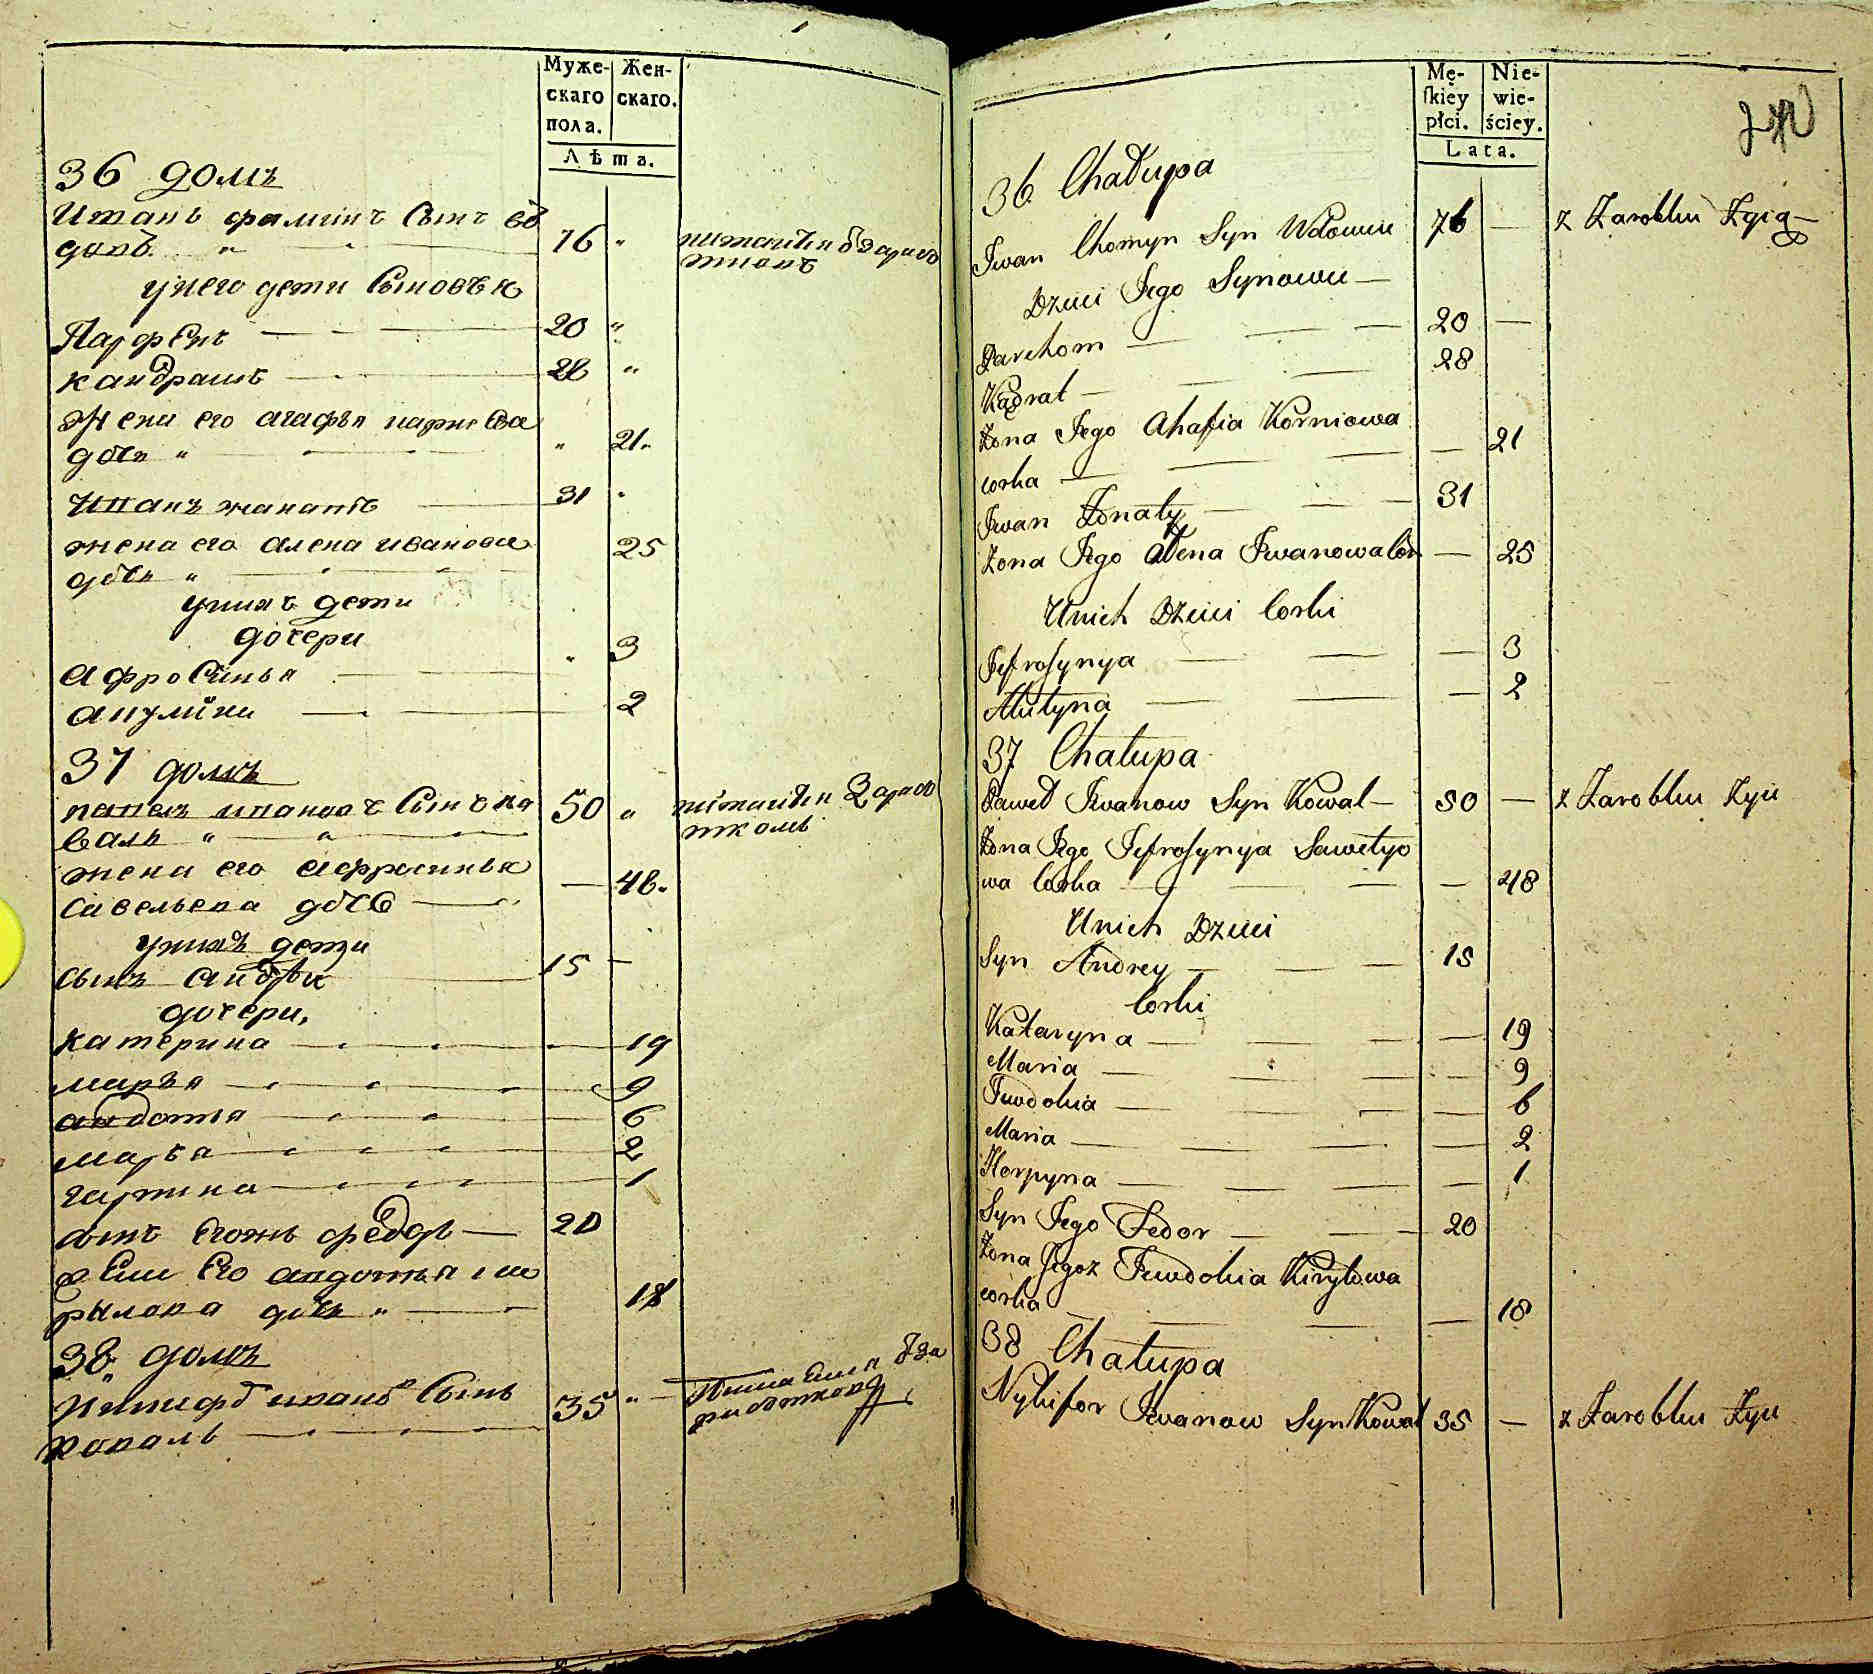 Муже- Жен-
скаго скаго.
пола.
Лѣта.
36 домъ
Иванъ фаминъ Сынъ вд
довъ " 76 " питаитьца зарабо
ткомъ
унего дети Сыновья
Парфенъ 20 "
кандратъ 28 "
жена его агафья карнеева
дочь " " 21.
Иванъ жанатъ 31
жена его алена иванова 25
дочь "
унихъ дети
дочери
афросинья " 3
акулина 2
37 домъ
павелъ ивановъ Сынъ ка 50 " питаитьца Зарабо
валь " " ткомъ
жена его афросинья — 48.
Савельева дочь
унихъ дети
сынъ андрей 15 —
дочери,
катерина 19
марья 9
авдотья 6
марья 2
гарпина 1
сынъ Егожъ федоръ — 20
жена Его авдотья ки
рылова дочь " 18
38 домъ
Никифоръ иванъ Сынъ 35 " —
коваль
Mę- Nie-
skiey wie-
płci. ściey.
Lata.
36 Chałupa
Jwan Chomyn Syn Wdowiec 76 — z Zarobku Zyią
Dzieci Jego Synowie —
Parchom — 20 —
Kądrat — 28
Zona Jego Ahafia Korniowa
corka — — 21
Jwan Zonaty — 31
Zona Jego Alena Jwanowa Cor — 25
Unich Dzieci Corki
Jefrosynya — — 3
Akulyna — — 2
37 Chałupa
Paweł Jwanow Syn Kowal — 50 — z Zarobku Zyie
Zona Jego Jefrosynya Sawelyo
wa Corka — — 48
Unich Dzieci
Syn Andrey — 15
Corki
Kataryna — — 19
Maria — — 9
Jewdokia — — 6
Maria — — 2
Horpyna — — 1
Syn Jego Fedor — 20
Zona Jegoz Jewdokia Kiryłowa
corka — — 18
38 Chałupa
Nykifor Jwanow Syn Kowal 35 — z Zarobku Zyie